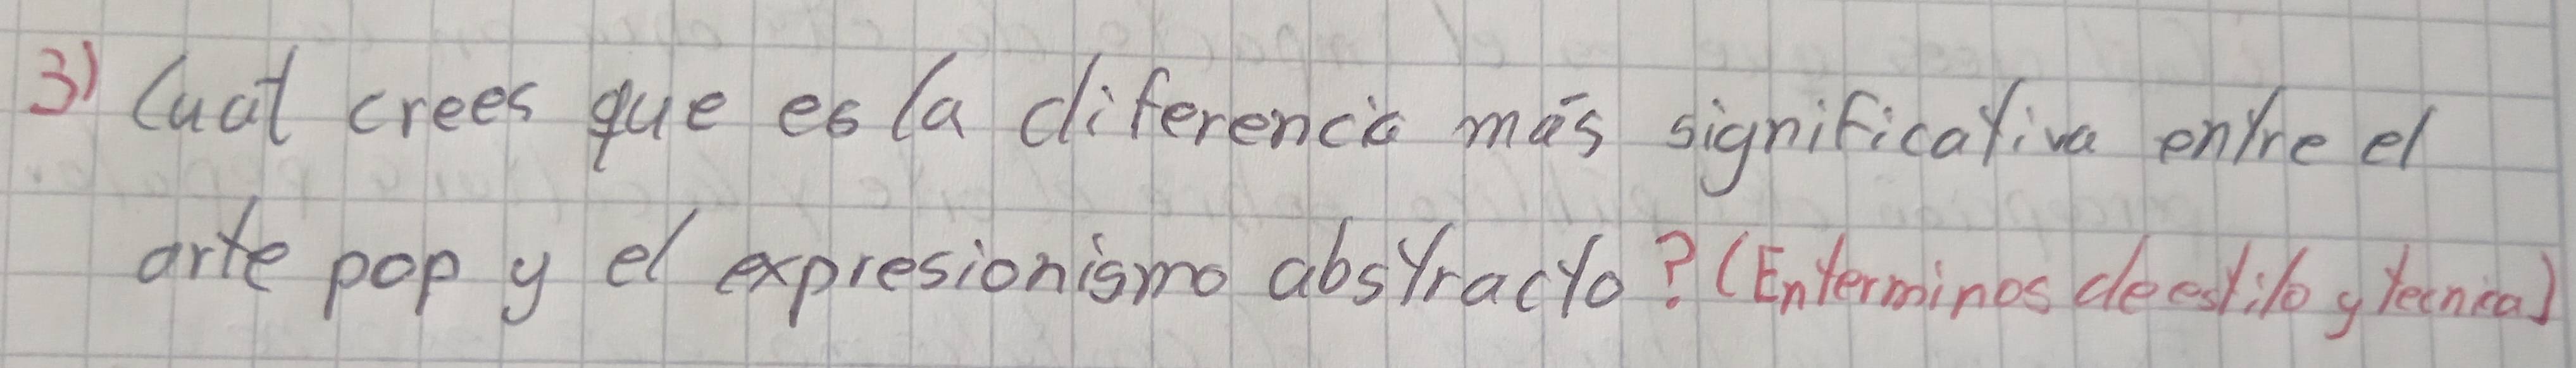 3) Cual crees que es la diferencia más significativa entre el
arte pop y el expresionismo abstracto? (En terminos de estilo y tecnica)